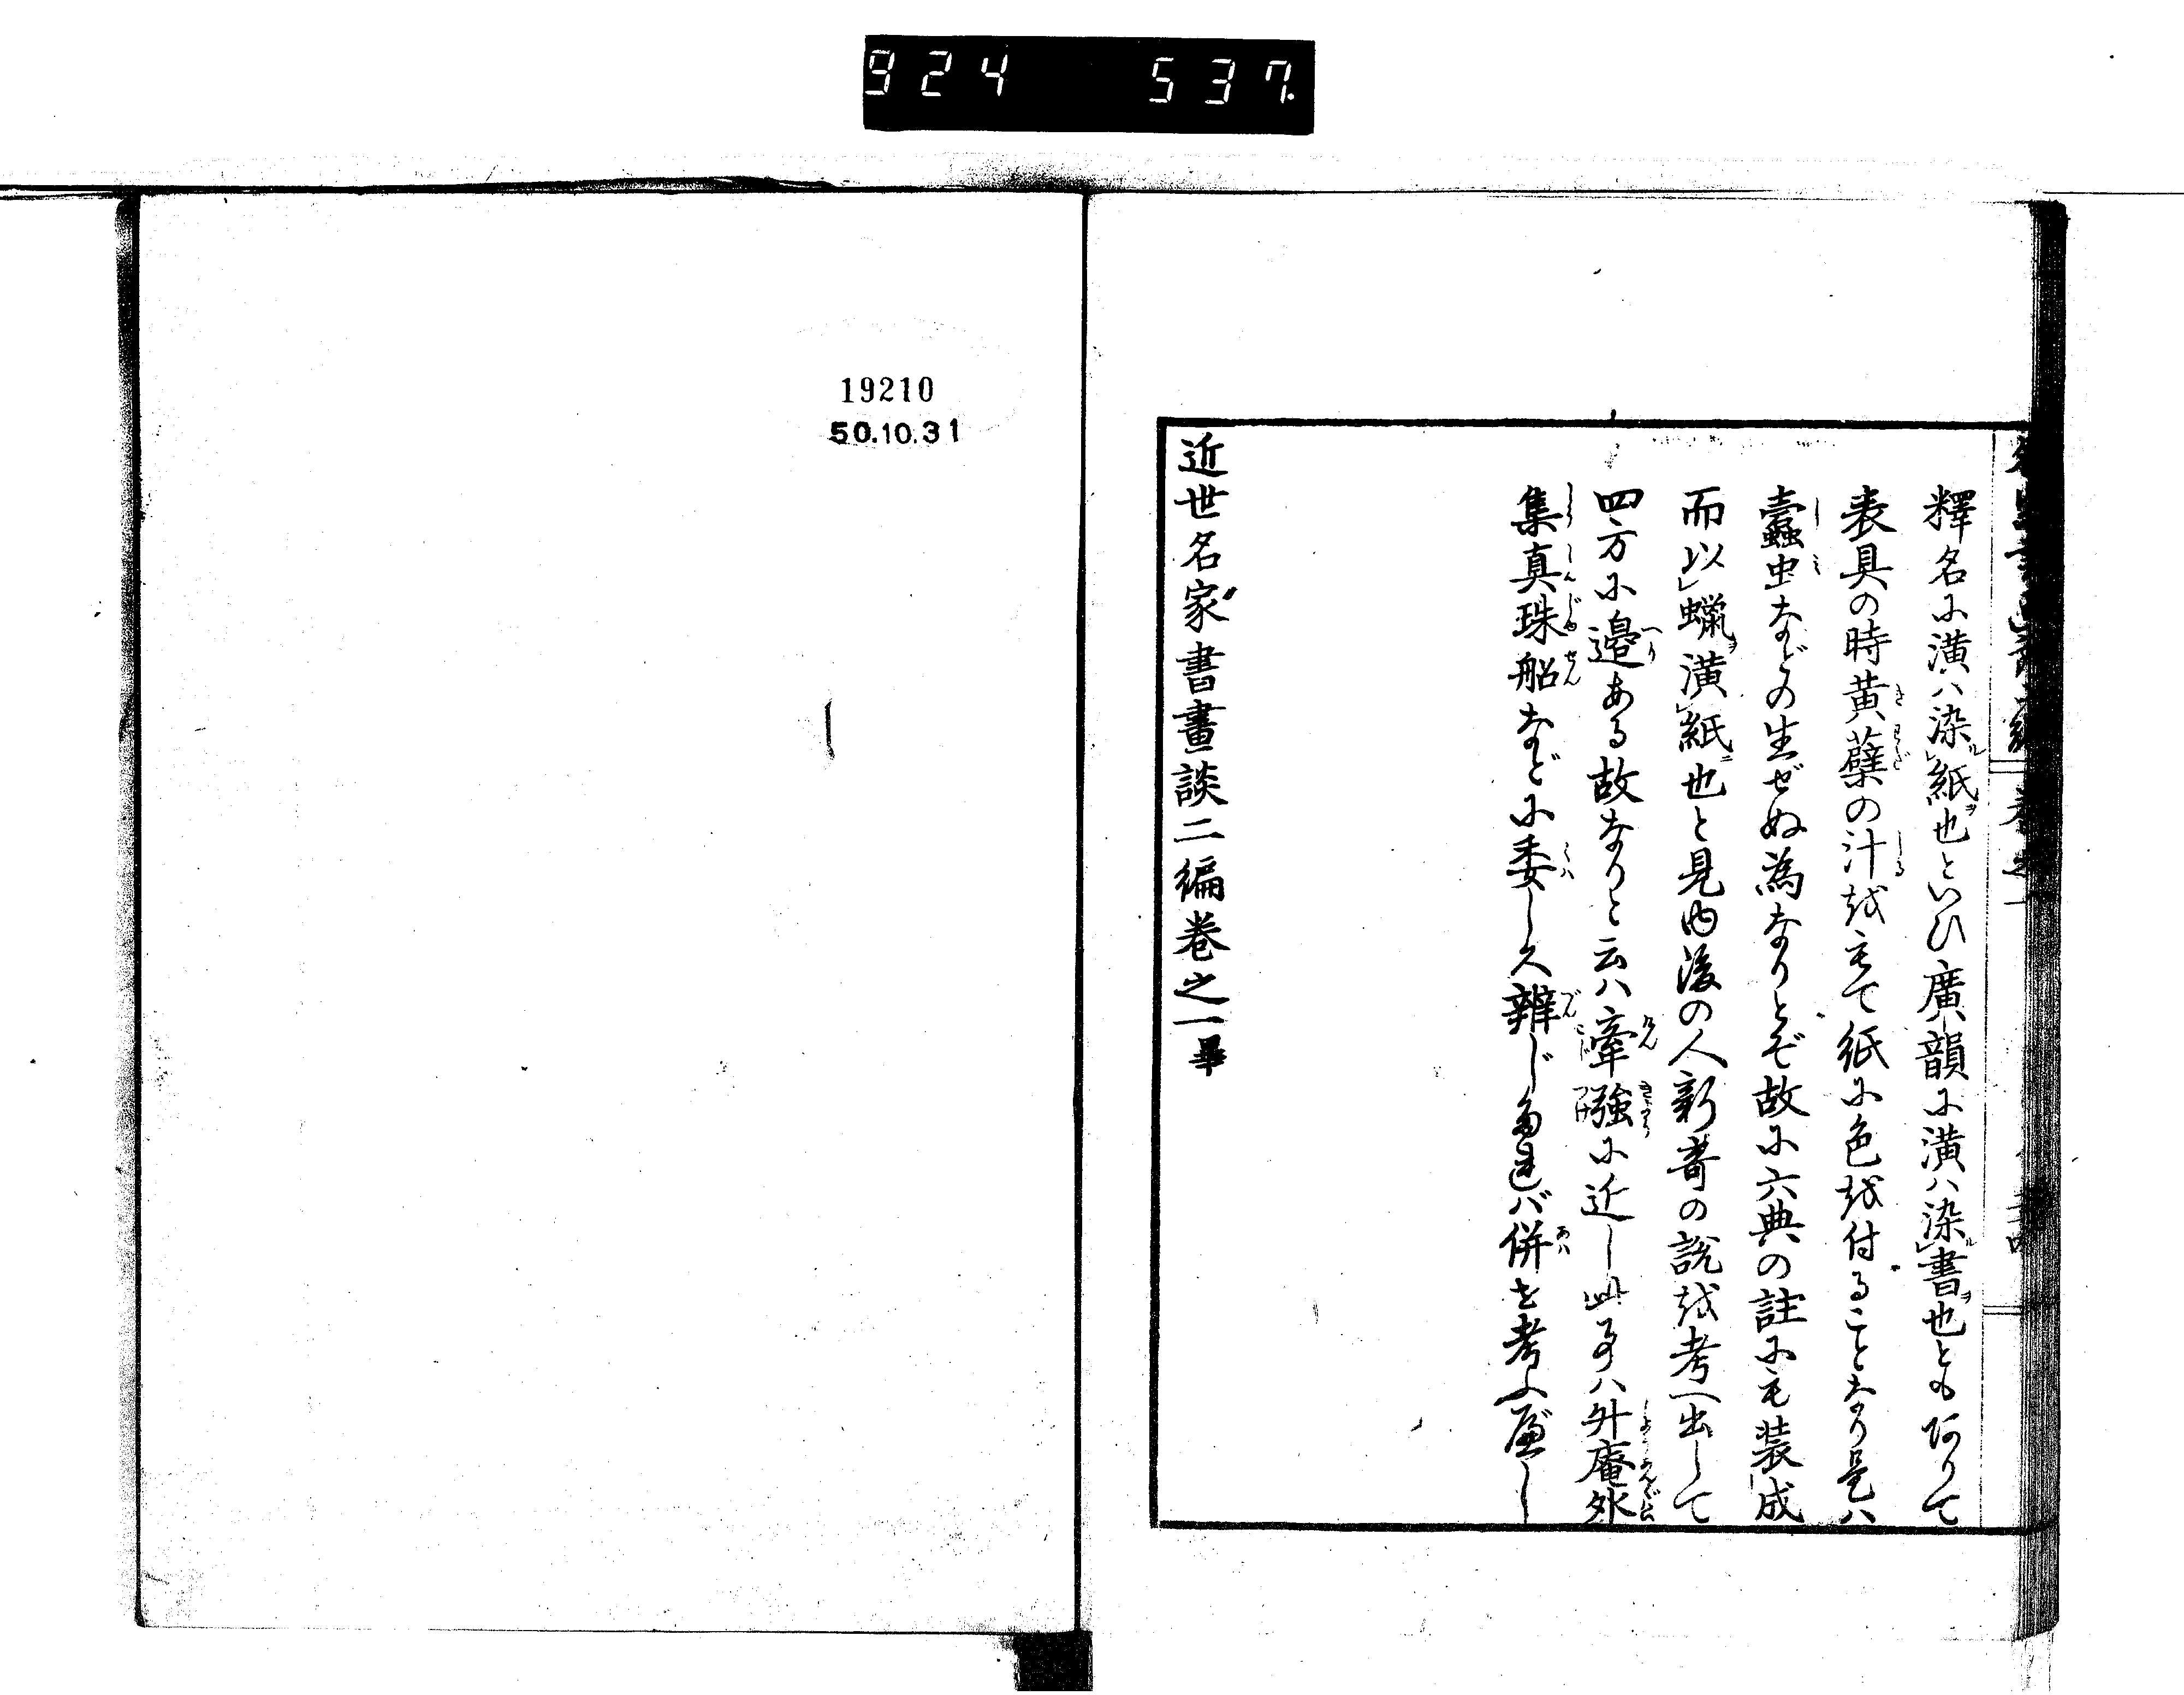 924 537.
釋名に潢ハ染レ紙也といひ廣韻に潢ハ染レ書也とも阿りて
表具の時黄蘖の汁越もて紙に色越付ることなり是ハ
蠹虫などの生ぜぬ為なりとぞ故に六典の註にも装成
而以レ蠟潢レ紙也と見ゆ後の人新奇の説越考へ出して
四方に邉ある故なりと云ハ牽強に近し此事ハ升庵外
集真珠船などに委しく辨じ多連バ併せ考ふ遍し
近世名家書畫談二編巻之一畢
19210
50.10.31